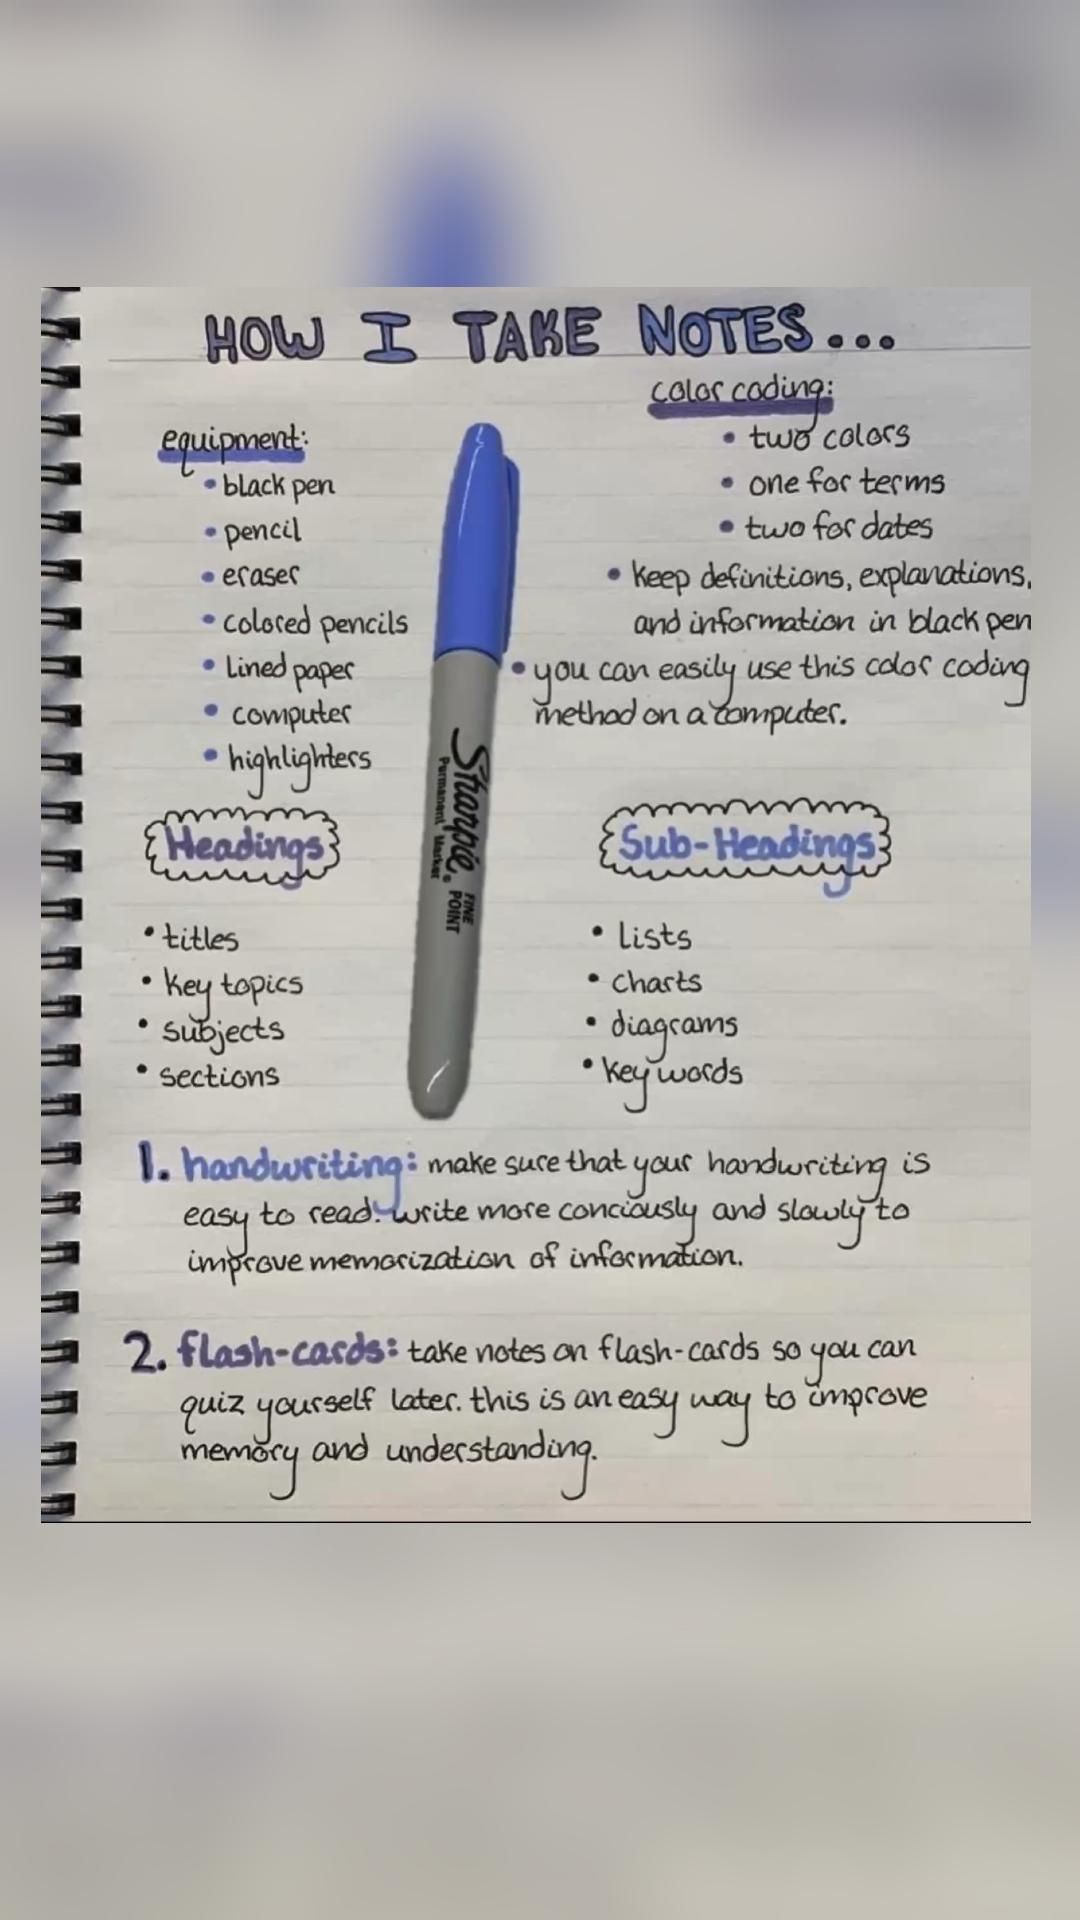 HOW I TAKE NOTES...
equipment:
• black pen
• pencil
• eraser
• colored pencils
• lined paper
• computer
• highlighters
color coding:
• two colors
• one for terms
• two for dates
• keep definitions, explanations,
and information in black pen
• you can easily use this color coding
method on a computer.
Sharpie.
Permanent Marker
FINE
POINT
Headings
• titles
• key topics
• subjects
• sections
Sub-Headings
• lists
• charts
• diagrams
• key words
1. handwriting: make sure that your handwriting is
easy to read. write more conciously and slowly to
improve memorization of information.
2. flash-cards: take notes on flash-cards so you can
quiz yourself later. this is an easy way to improve
memory and understanding.